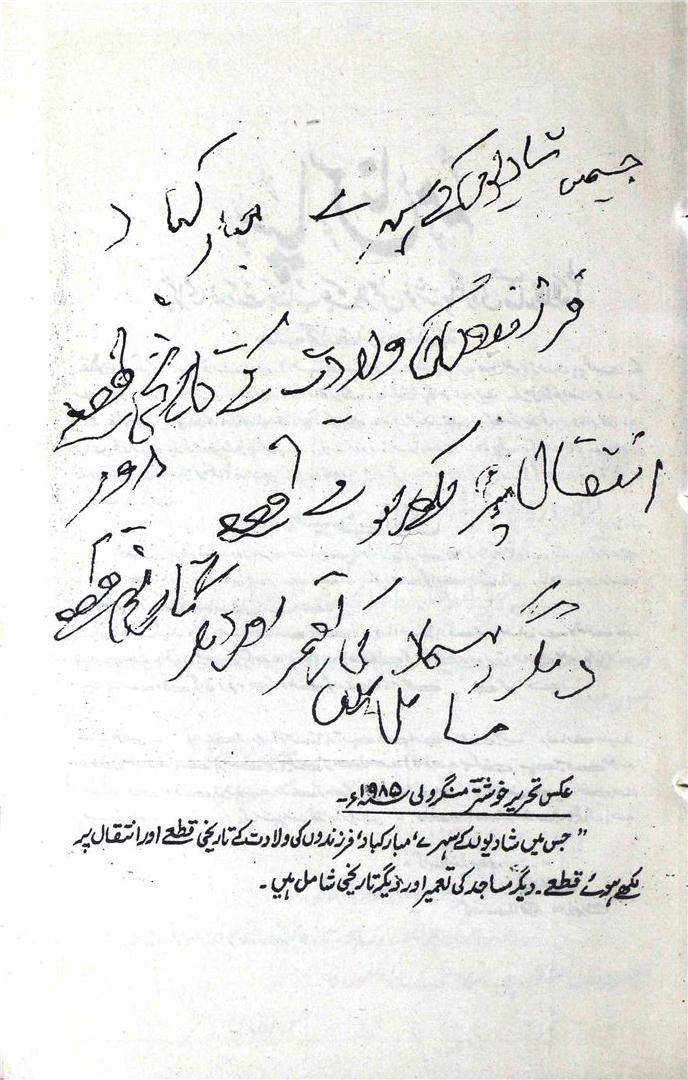 جسمیں شادیوں کے سہرے مبارکباد
فرزندوں کی ولادت کے تاریخی قطعے
اور
انتقال پر لکھے ہوے قطعے
دیگر مساجد کی تعمیر اور دیگر تاریخی قطعے
شامل ہیں
عکس تحریر خوشتر منگرولی ۱۹۸۵ء۔
" جس میں شادیوں کے سہرے، مبارکباد، فرزندوں کی ولادت کے تاریخی قطعے اور انتقال پر
لکھے ہوئے قطعے۔ دیگر مساجد کی تعمیر اور دیگر تاریخی شامل ہیں۔